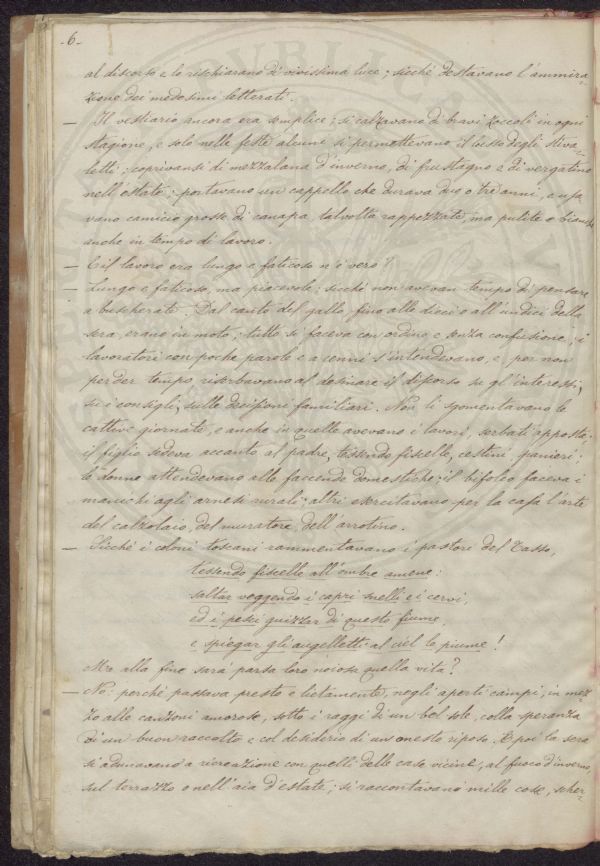 -6-
al discorso e lo rischiarano di vivissima luce; sicchè destavano l'ammira-
zione dei medesimi letterati.
— Il vestiario ancora era semplice; si calzavano di bravi zoccoli in ogni
stagione, e solo nelle feste alcuno si permettevano il lusso degli stiva-
letti; coprivansi di mezzalana d'inverno, di frustagno e di vergatino
nell'estate; portavano un cappello che durava due o tre anni, e usa
vano camicie grosse di canapa, talvolta rappezzate, ma pulite e bianche
anche in tempo di lavoro.
— E il lavoro era lungo e faticoso n'è vero?
— Lungo e faticoso, ma piacevole; sicchè non avevan tempo di pensare
a buscherate. Dal canto del gallo, fino alle dieci o all'undici della
sera, erano in moto; tutto si faceva con ordine e senza confusione; i
lavoratori con poche parole e a cenni s'intendevano, e per non
perder tempo, riserbavano al desinare il discorso su gl'interessi,
su i consigli, sulle decisioni familiari. Non li sgomentavano le
cattive giornate, e anche in quelle avevano i lavori, serbati apposta;
il figlio sedeva accanto al padre, tessendo fiscelle, cestini, panieri;
le donne attendevano alle faccende domestiche; il bifolco faceva i
manichi agli arnesi rurali; altri esercitavano per la casa l'arte
del calzolaio, del muratore, dell'arrotino.
— Sicchè i coloni toscani rammentavano i pastori del Tasso,
tessendo fiscelle all'ombre amene:
saltar veggendo i capri snelli e i cervi,
ed i pesci guizzar di questo fiume,
e spiegar gli augelletti al ciel le piume!
Ma alla fine sarà parsa loro noiosa quella vita?
— No: perchè passava presto e lietamente, negli aperti campi, in mez-
zo alle canzoni amorose, sotto i raggi di un bel sole, colla speranza
di un buon raccolto e col desiderio di un onesto riposo. E poi la sera
si adunavano a ricreazione con quelli delle case vicine, al fuoco d'inverno,
sul terrazzo o nell'aia d'estate; si raccontavano mille cose, scher-